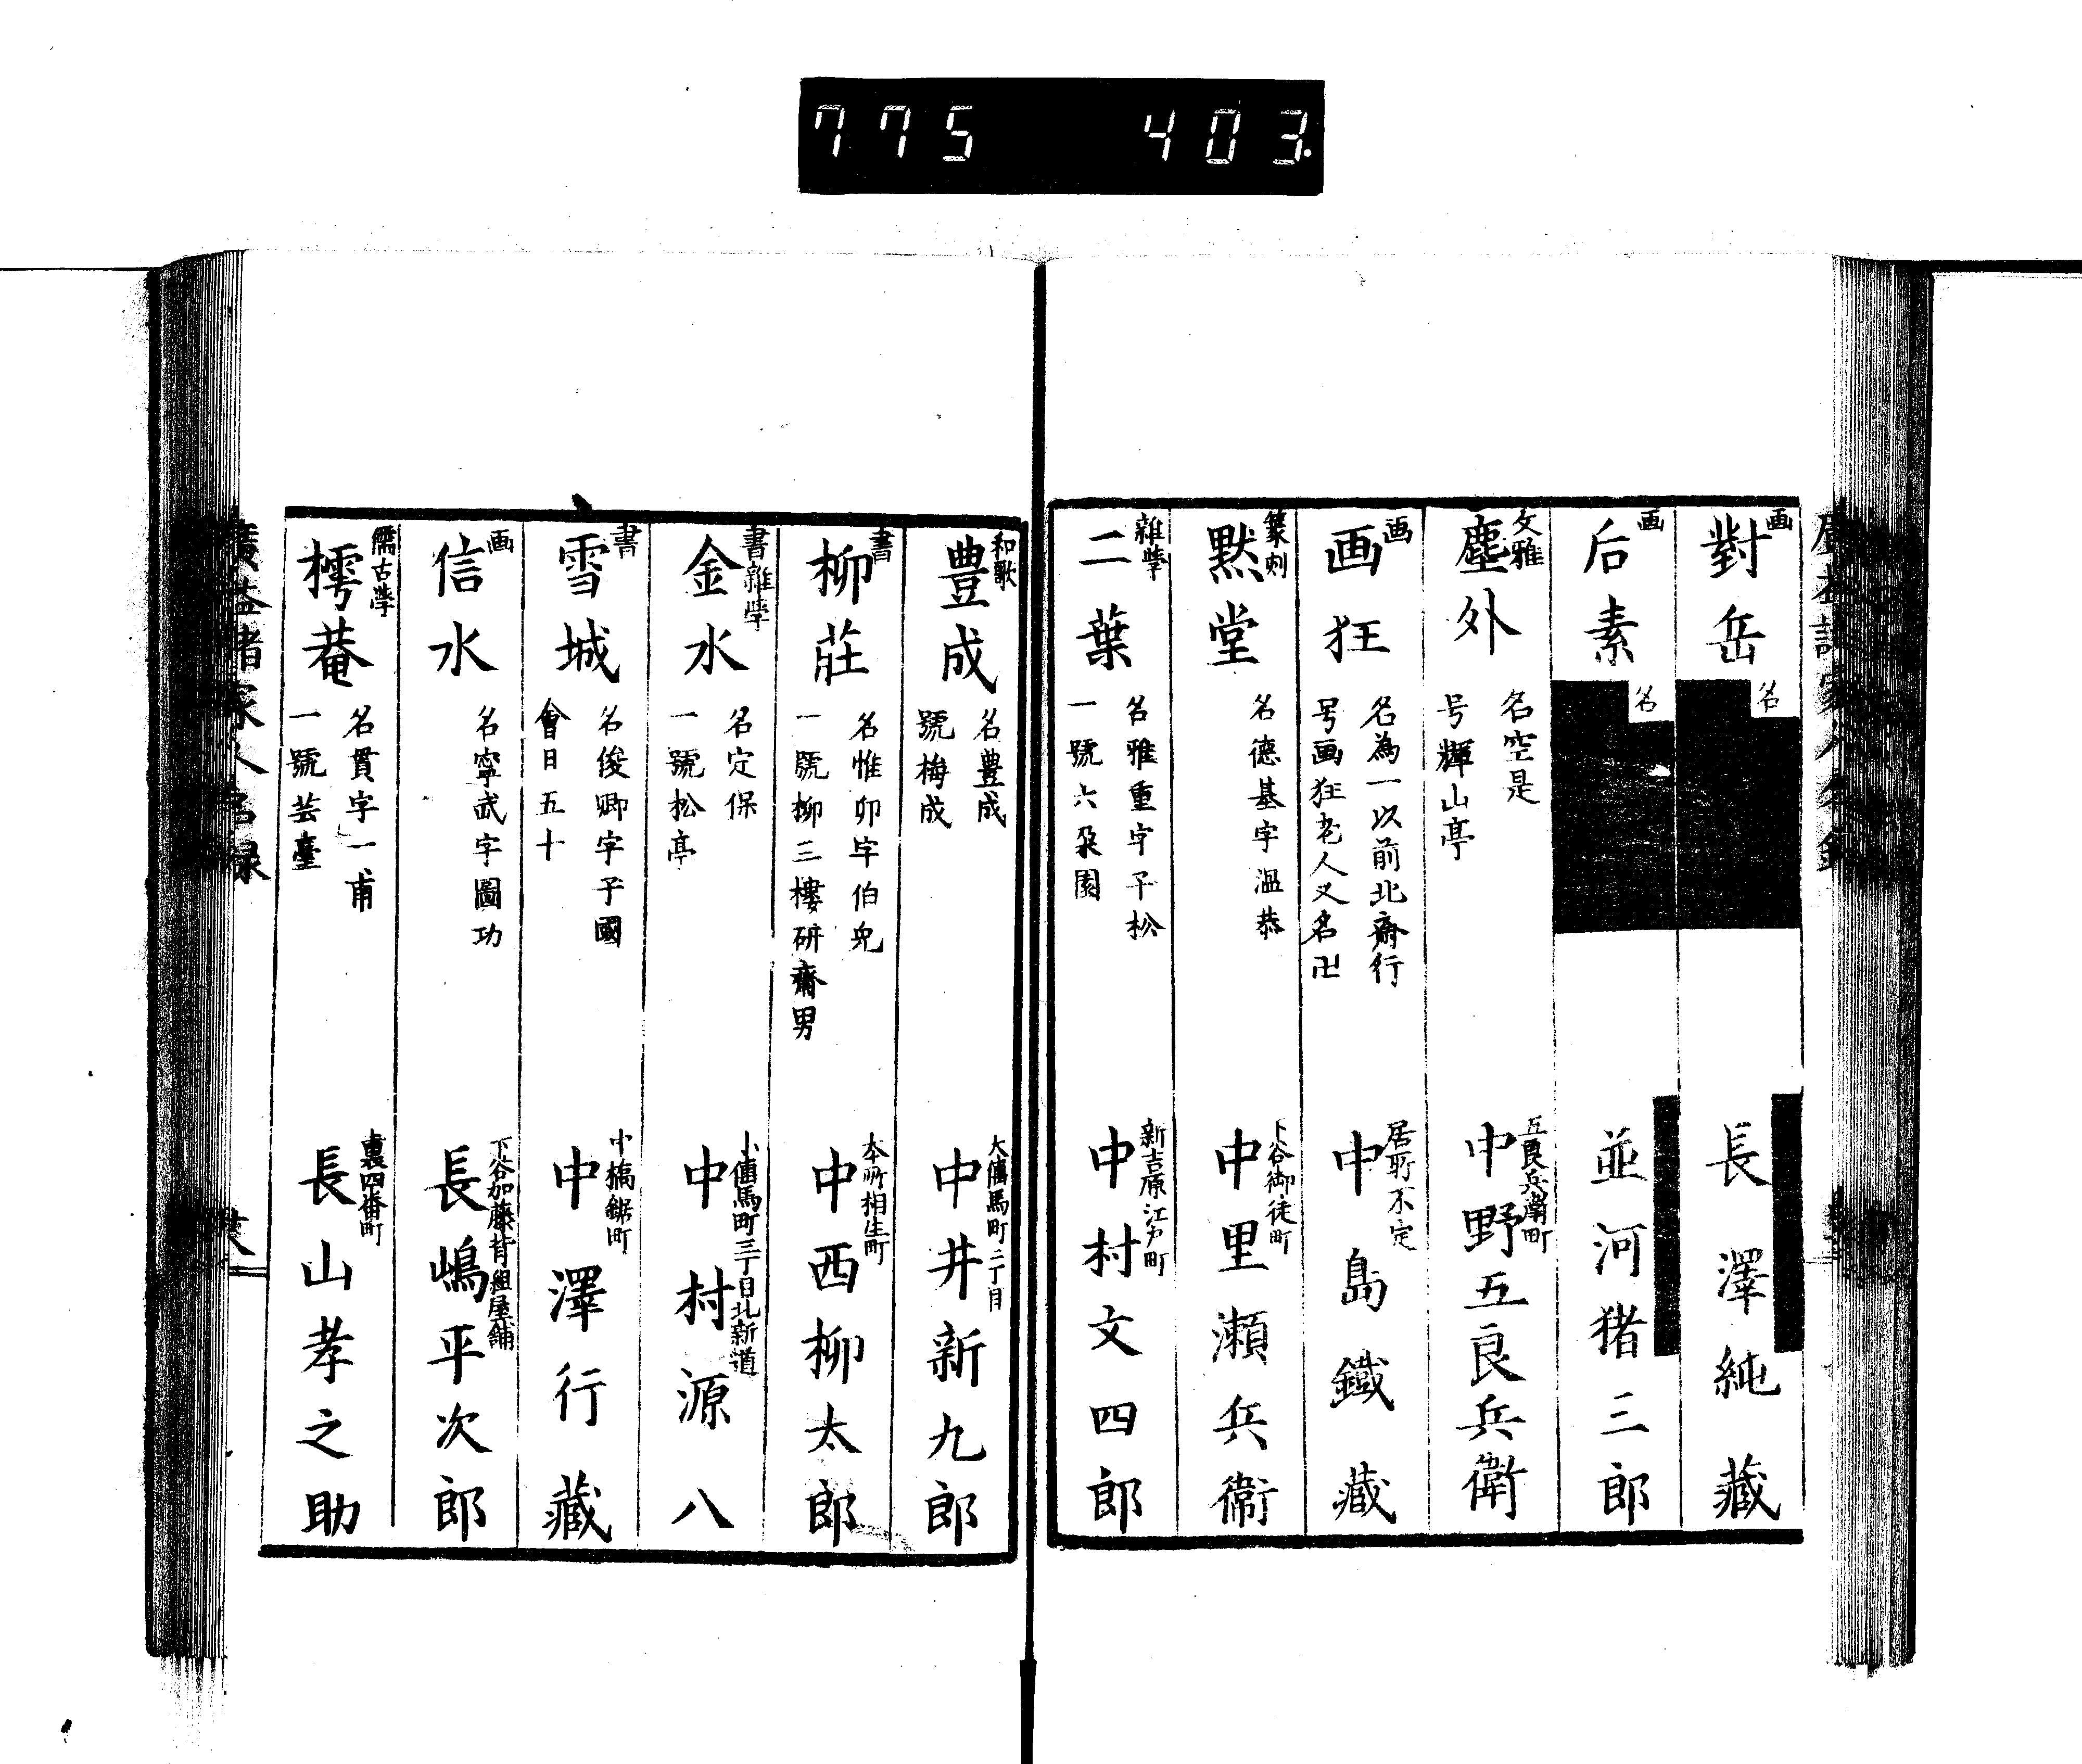 775 403.
画
對岳
名
長澤純藏
画
后素
名
並河猪三郎
文雅
塵外
名空是
号輝山亭
五良兵衛町
中野五良兵衛
画
画狂
名為一以前北齋行
号画狂老人又名卍
居所不定
中島鐵藏
篆刻
黙堂
名德基字温恭
下谷御徒町
中里瀬兵衞
雜學
二葉
名雅重字子松
一號六朶園
新吉原江戸町
中村文四郎
和歌
豊成
名豊成
號梅成
大傳馬町二丁目
中井新九郎
書
柳莊
名惟卯字伯皃
一號柳三樓研齋男
本所相生町
中西柳太郎
書雜學
金水
名定保
一號松亭
小傳馬町三丁目北新道
中村源八
書
雪城
名俊卿字子國
會日五十
中橋鋸町
中澤行藏
画
信水
名寧武字圖功
下谷加藤背組屋舗
長嶋平次郎
儒古學
樗菴
名貫字一甫
一號芸臺
裏四番町
長山孝之助
廣益諸家人名録